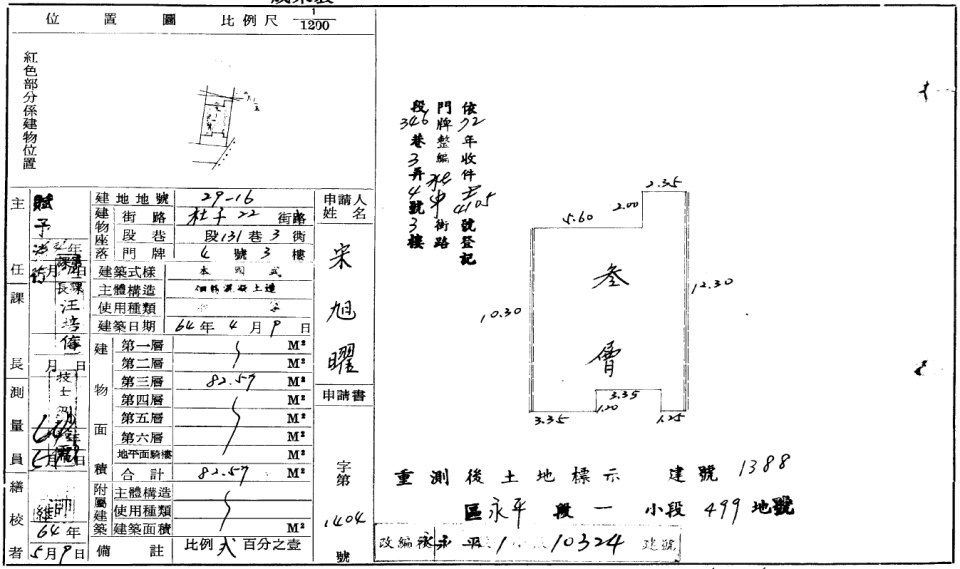 位置圖 比例尺 1/1200
紅色部分係建物位置
主任課長
測量員
繕校者
64年
5月9日
建地地號 29-16
建物座落
街路 社子22 街路
段巷 段131巷3衖
門牌 4號3樓
建築式樣 本國式
主體構造
使用種類
建築日期 64年4月9日
建物面積
第一層 M²
第二層 M²
第三層 82.57 M²
第四層 M²
第五層 M²
第六層 M²
地平面騎樓 M²
合計 82.57 M²
附屬建築
主體構造
使用種類
建築面積 M²
備註 比例 式 百分之壹
申請人姓名
宋旭曜
申請書
字第
1404
號
依72年收件士4105號登記
門牌整編社中街路
段346巷3弄4號3樓
2.35
2.00
5.60
叁層
10.30
12.30
3.35
1.20
3.35
1.25
重測後土地標示 建號 1388
區永平段一小段 499地號
改編後永平1 10324 建號